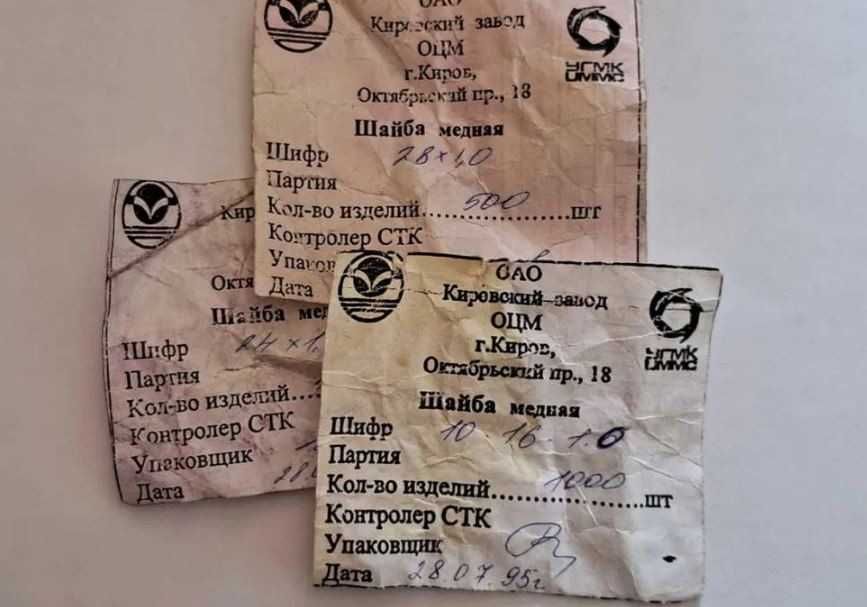 ОАО
Кировский завод
ОЦМ
г.Киров,
Октябрьский пр., 18
УГМК
UMMC
Шайба медная
Шифр 28×1,0
Партия
Кол-во изделий 500 шт
Контролер СТК
Упаков
Дата
Кир
Октя
Шайба мед
Шифр 24×1,
Партия
Кол-во изделий
Контролер СТК
Упаковщик
Дата 28.0
ОАО
Кировский завод
ОЦМ
г.Киров,
Октябрьский пр., 18
УГМК
UMMC
Шайба медная
Шифр 10-16-1.0
Партия
Кол-во изделий 1000 шт
Контролер СТК
Упаковщик
Дата 28.07.95г